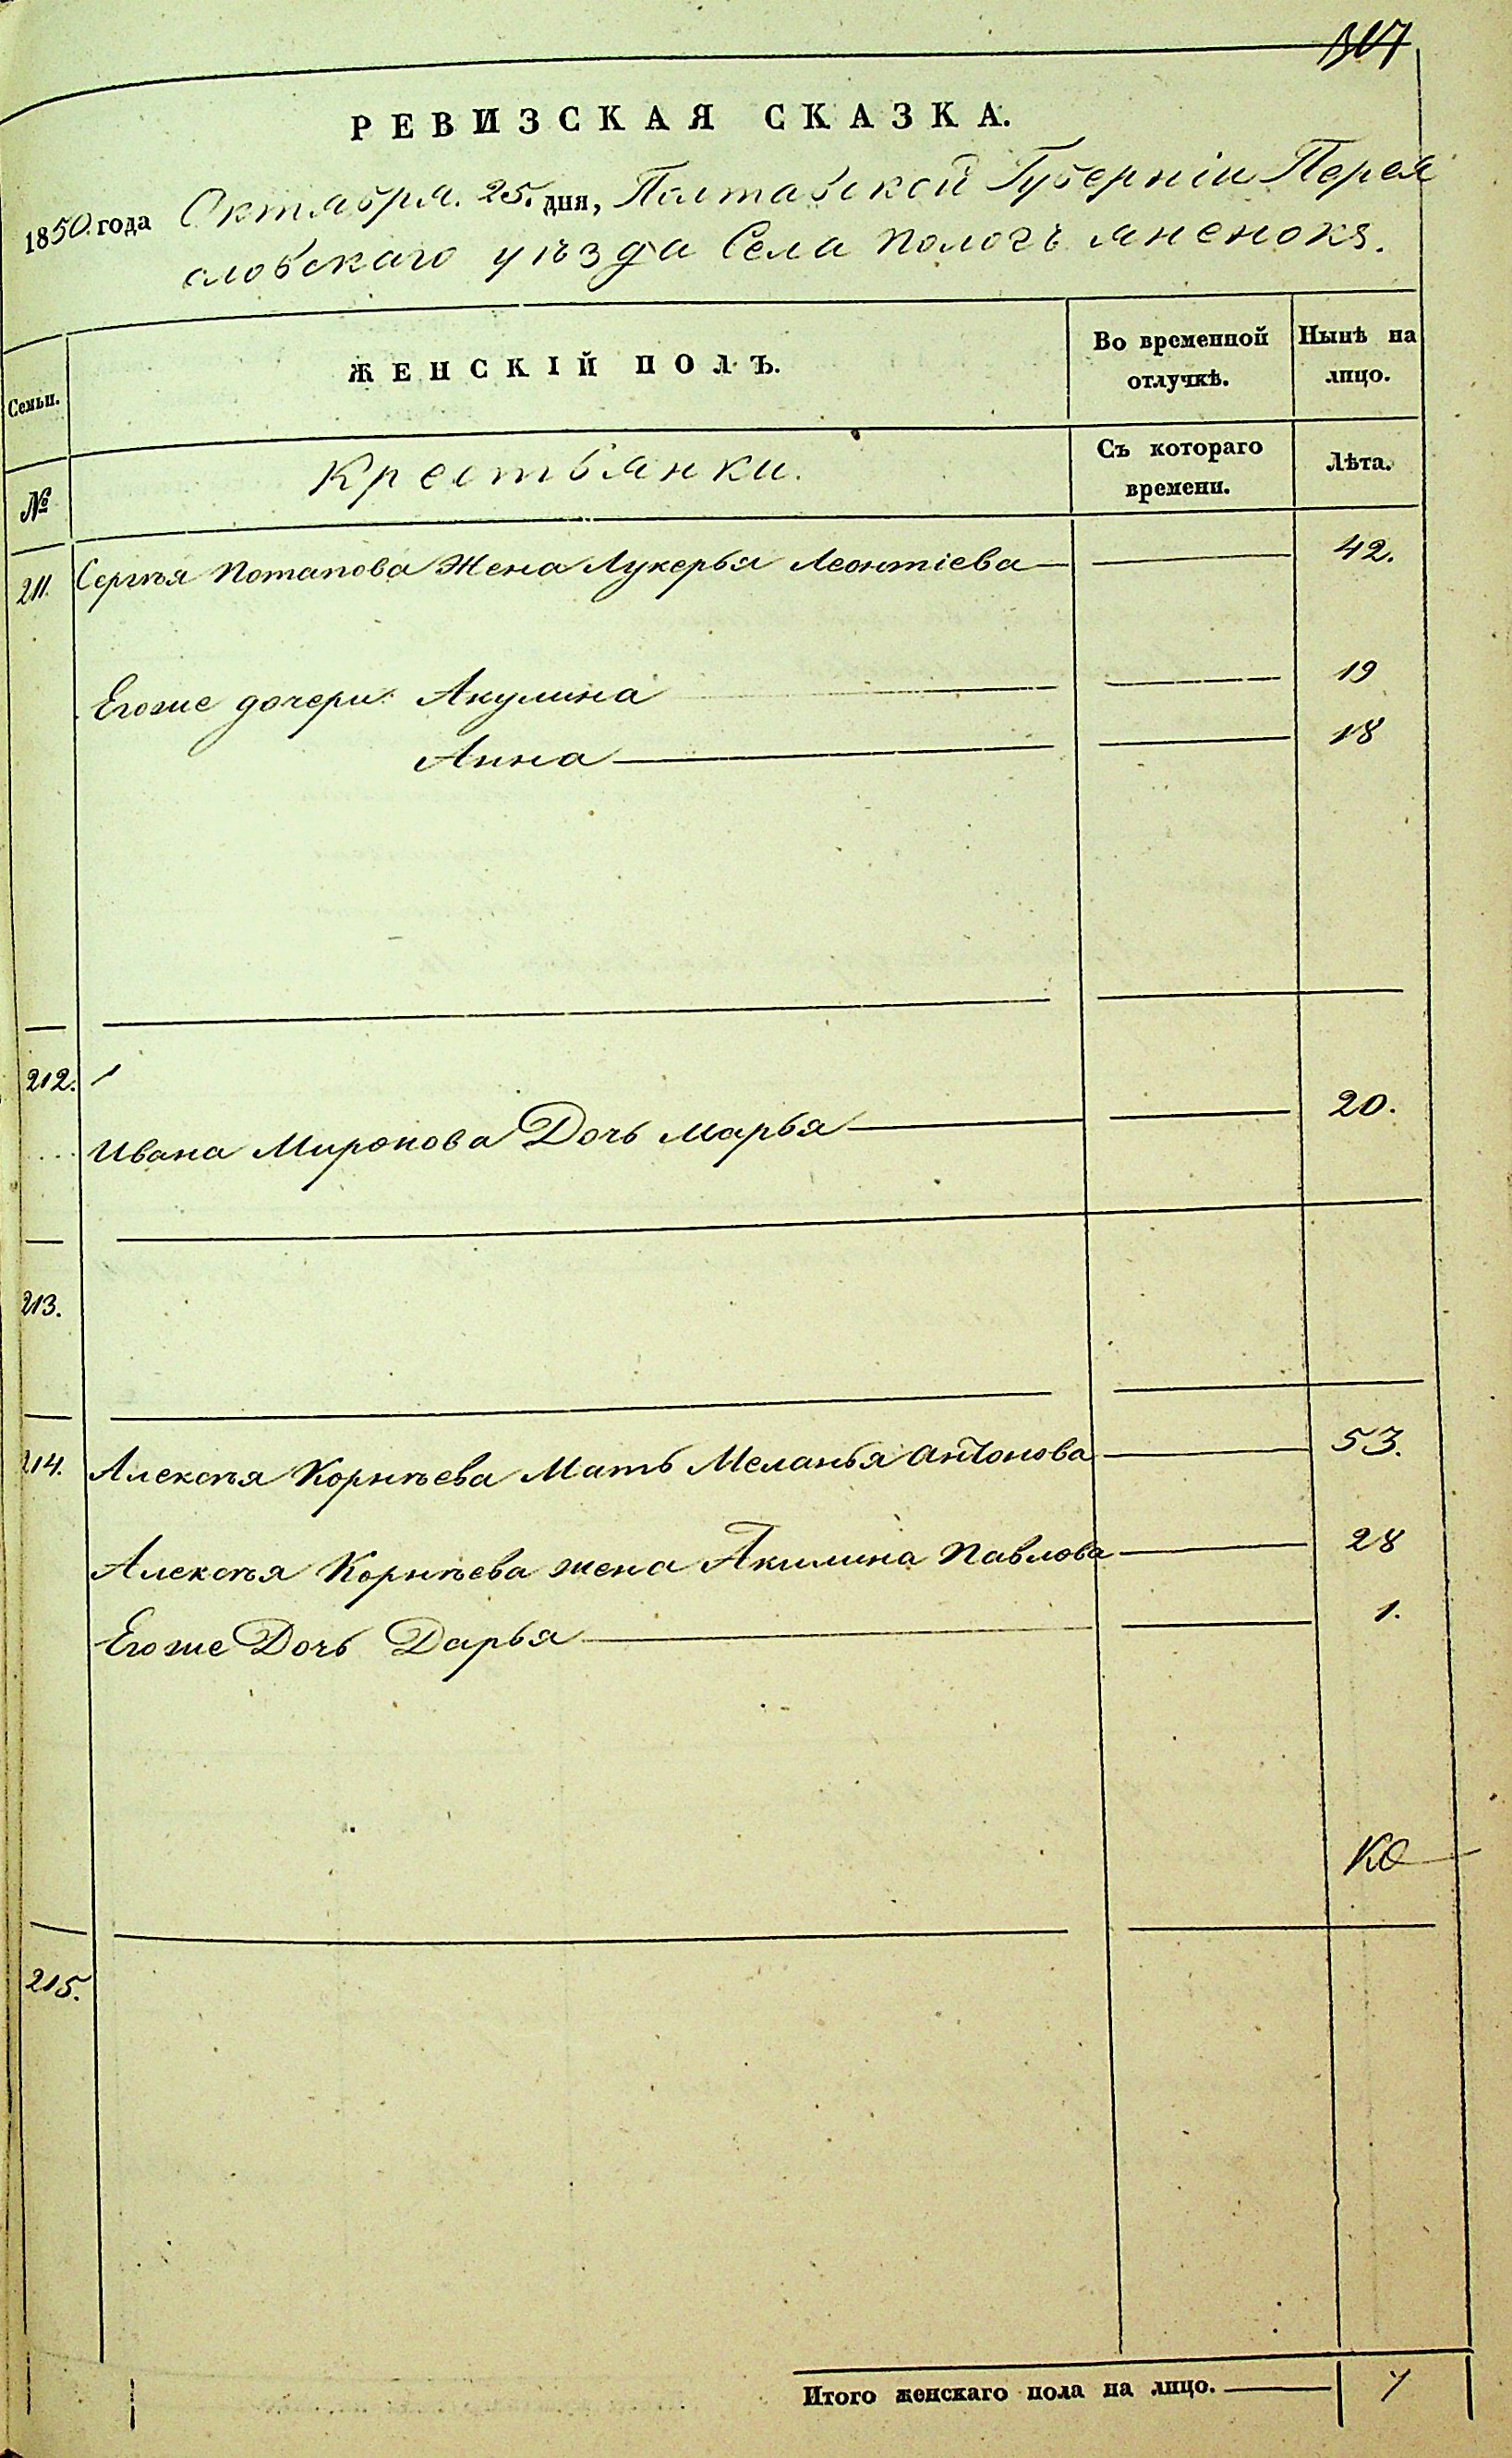 РЕВИЗСКАЯ СКАЗКА.
1850. года Октября. 25. дня, Полтавской Губерніи Перея
словскаго уѣзда Села Пологъ яненокъ.
Семьи.
ЖЕНСКІЙ ПОЛЪ.
Во временной отлучкѣ.
Нынѣ на лицо.
№
Крестьянки.
Съ котораго времени.
Лѣта.
211. Сергѣя Потапова Жена Лукерья Леонтіева 42.
Егоже дочери: Акулина 19
Анна 18
212.
Ивана Миронова Дочь Марья 20.
213.
214. Алексѣя Корнѣева Мать Меланья Антонова 53.
Алексѣя Корнѣева жена Акилина Павлова 28
Егоже Дочь Дарья 1.
215.
Итого женскаго пола на лицо. 7